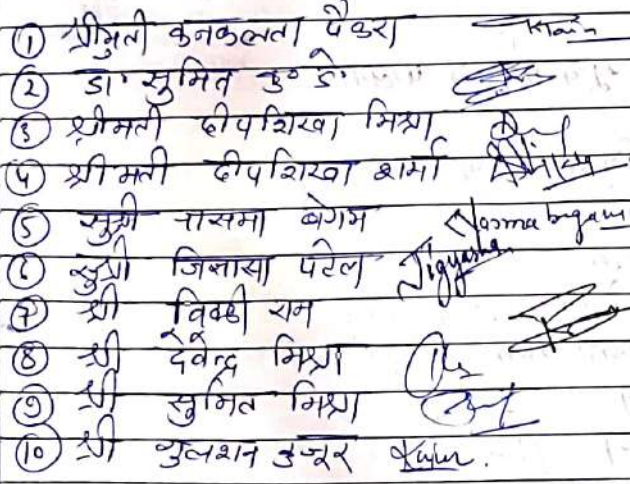 ① श्रीमती कनकलता पैकरा
② डा॰ सुमित कु॰ डे॰
③ श्रीमती दीपशिखा मिश्रा
④ श्रीमती दीपशिखा शर्मा
⑤ सुश्री नासमा बेगम Nasma begam
⑥ सुश्री जिज्ञासा पटेल Jigyasha
⑦ श्री विक्की राम
⑧ श्री देवेन्द्र मिश्रा
⑨ श्री सुमित मिश्रा
⑩ श्री गुलशन कुजूर Kujur.